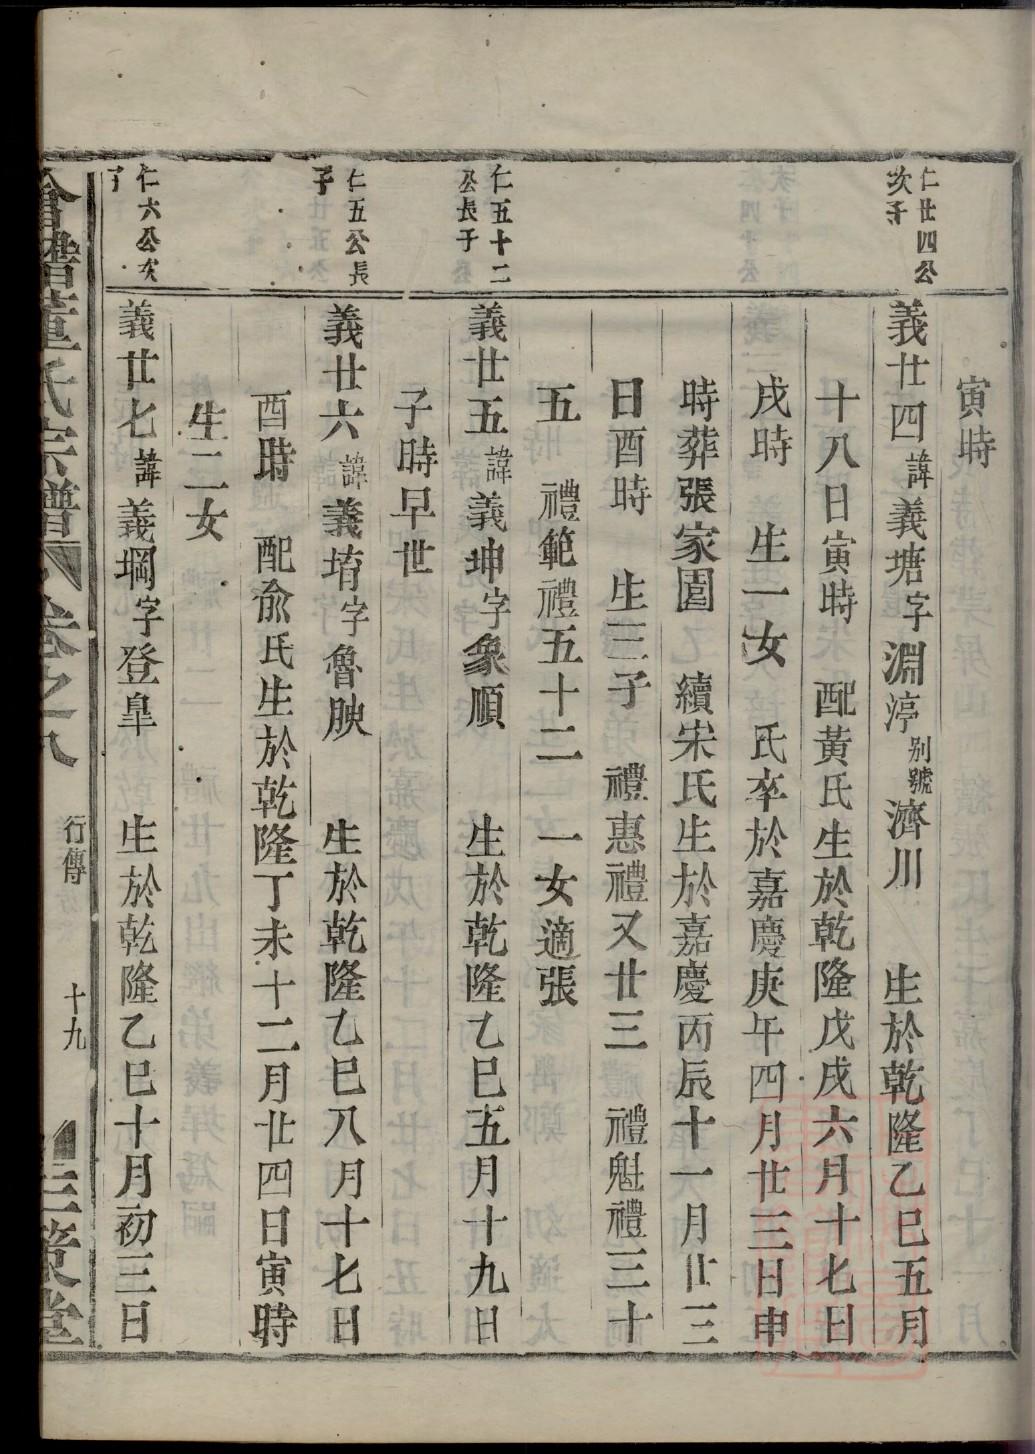 寅時
仁廿四公
次子
義廿四諱義塘字淵渟別號濟川　生於乾隆乙巳五月
十八日寅時　配黃氏生於乾隆戊戌六月十七日
戌時　生一女　氏卒於嘉慶庚午四月廿三日申
時葬張家園　續宋氏生於嘉慶丙辰十一月廿三
日酉時　生三子　禮惠禮又廿三　禮魁禮三十
五　禮範禮五十二　一女適張
仁五十二
公長子
義廿五諱義坤字象順　生於乾隆乙巳五月十九日
子時早世
仁五公長
子
義廿六諱義堉字魯腴　生於乾隆乙巳八月十七日
酉時　配俞氏生於乾隆丁未十二月廿四日寅時
生二女
仁六公次
子
義廿七諱義堈字登臯　生於乾隆乙巳十月初三日
會稽董氏宗譜　卷之八　行傳　十九　三策堂